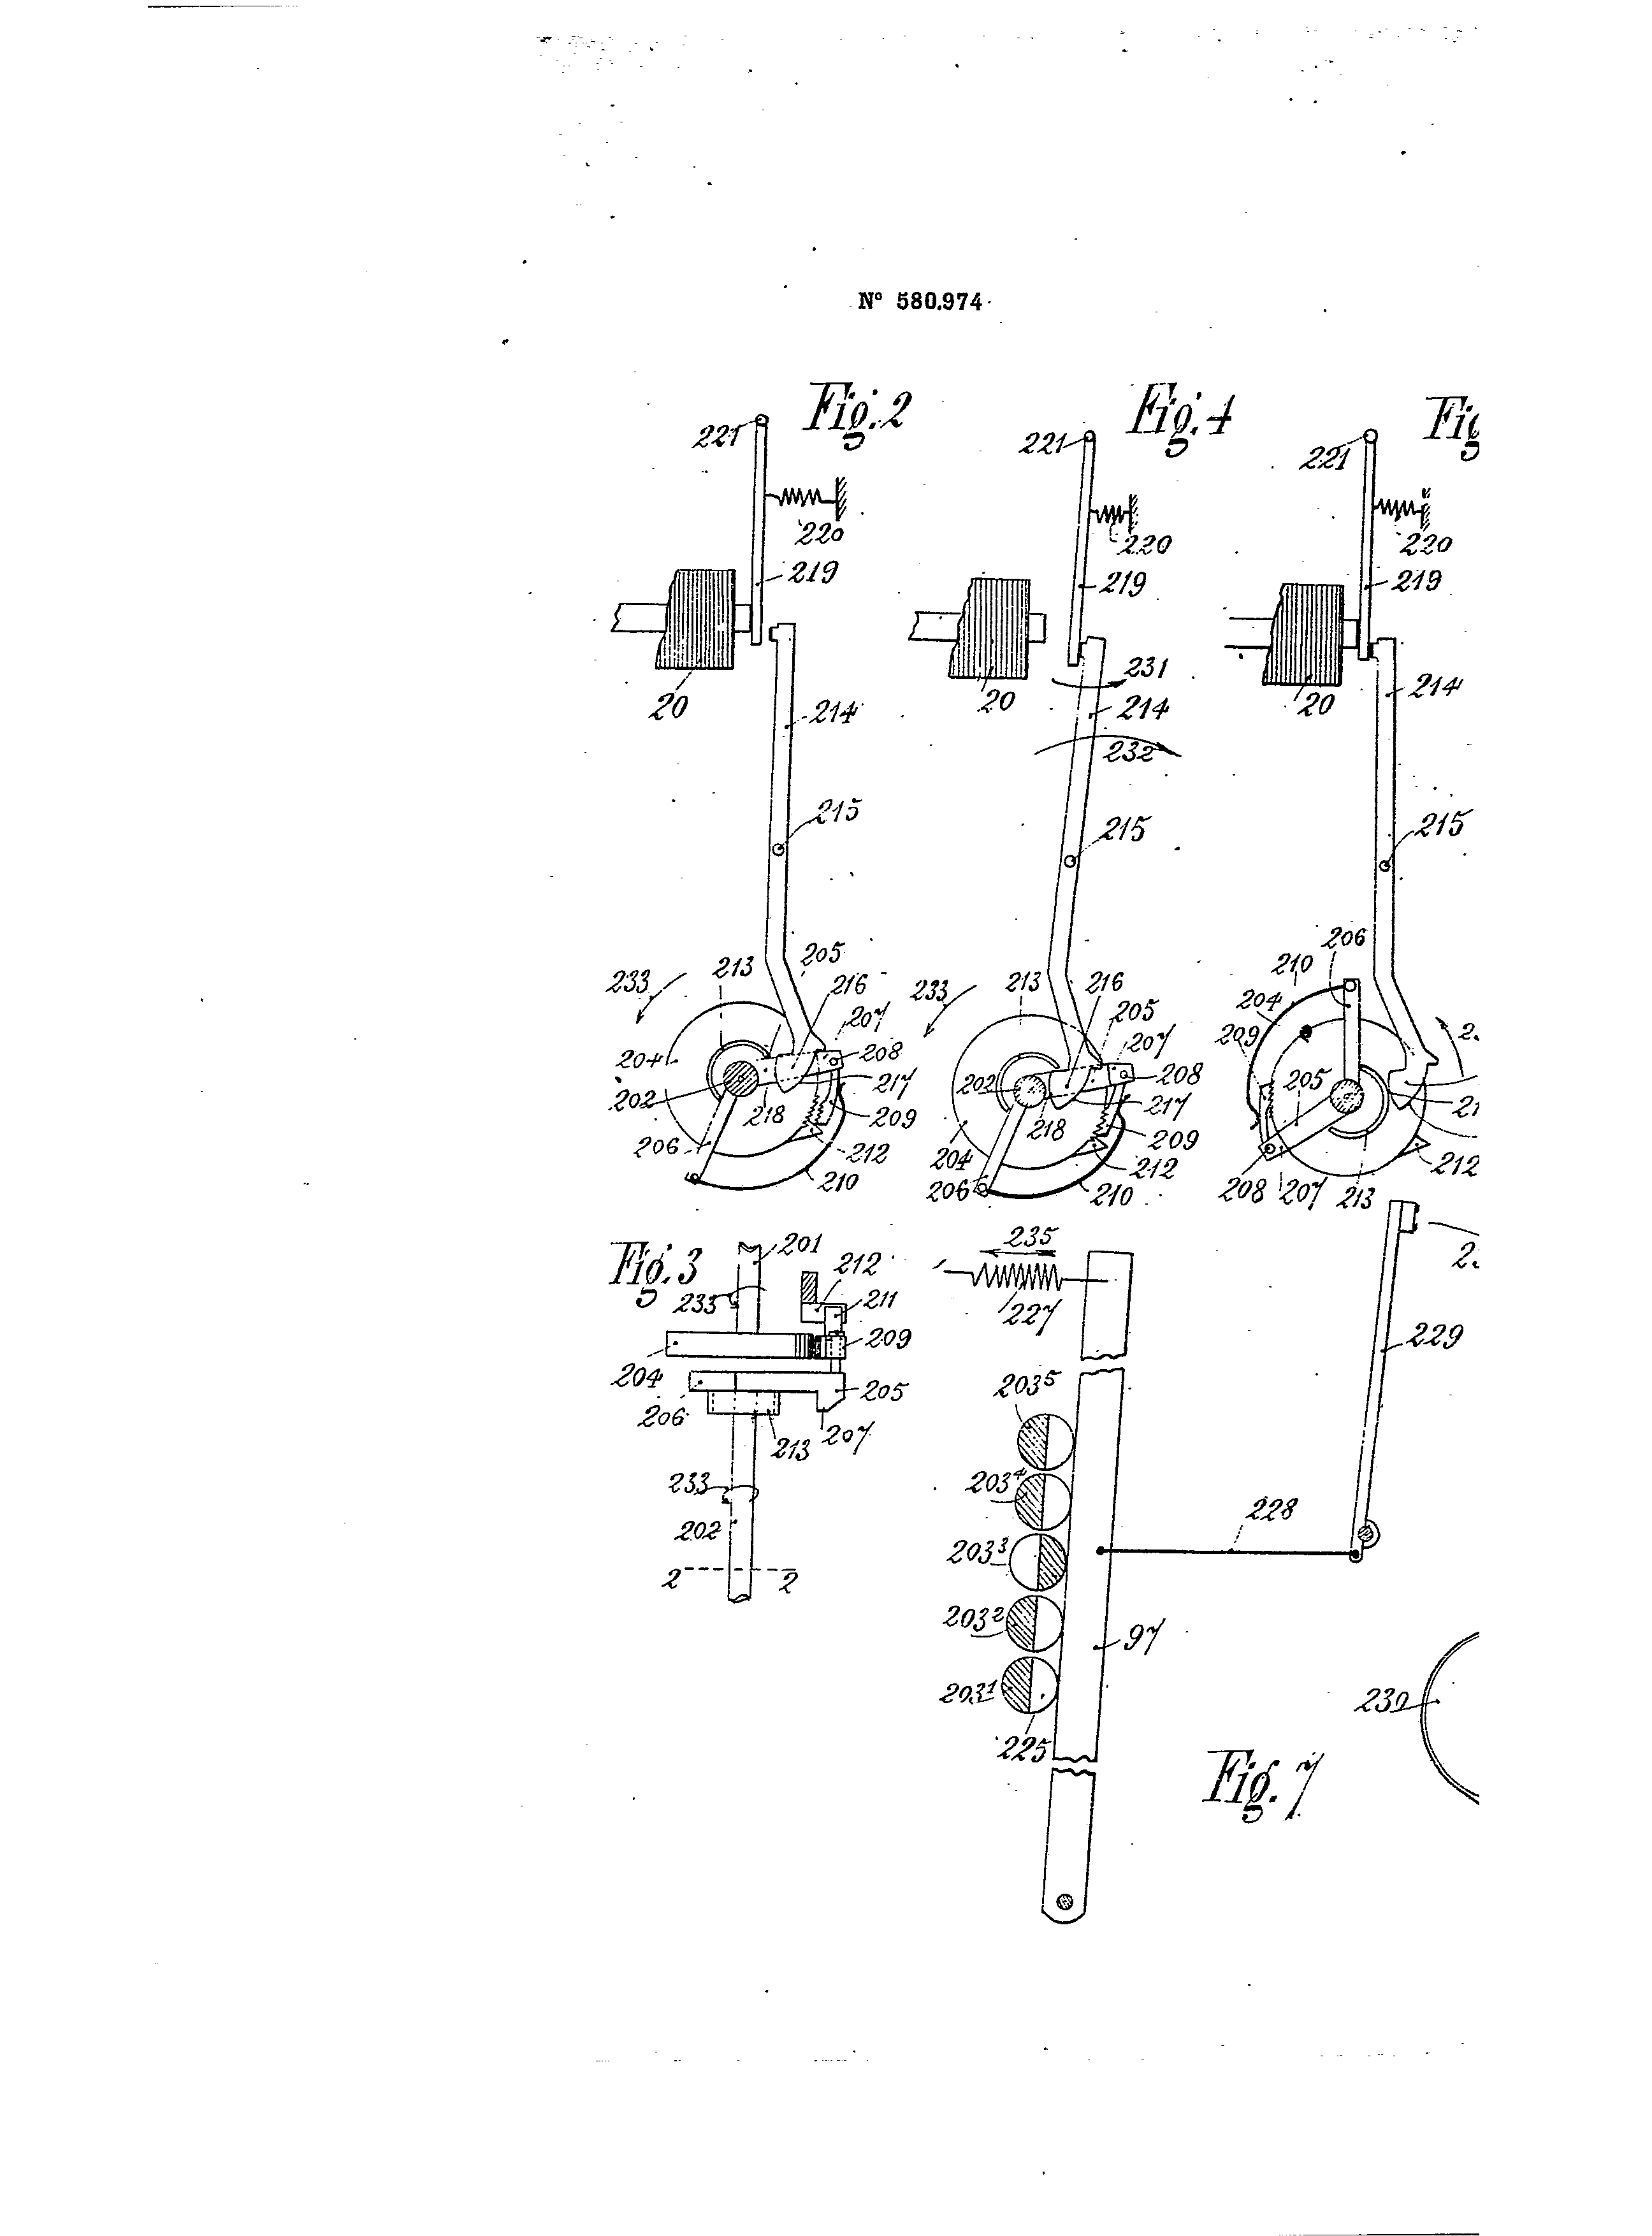 N° 580.974
Fig. 2
221
220
219
20
214
215
205
213
233
216
207
204
208
202
217
218
209
206
212
210
Fig. 4
221
220
219
231
20
214
232
215
213
216
233
205
207
202
208
217
218
209
204
212
206
210
Fig
221
220
219
20
214
215
206
210
204
209
205
21
212
208
207
213
Fig. 3
201
212
233
211
209
204
205
206
207
213
233
202
2
2
235
227
203⁵
203⁴
203³
203²
203¹
225
97
228
229
230
Fig. 7